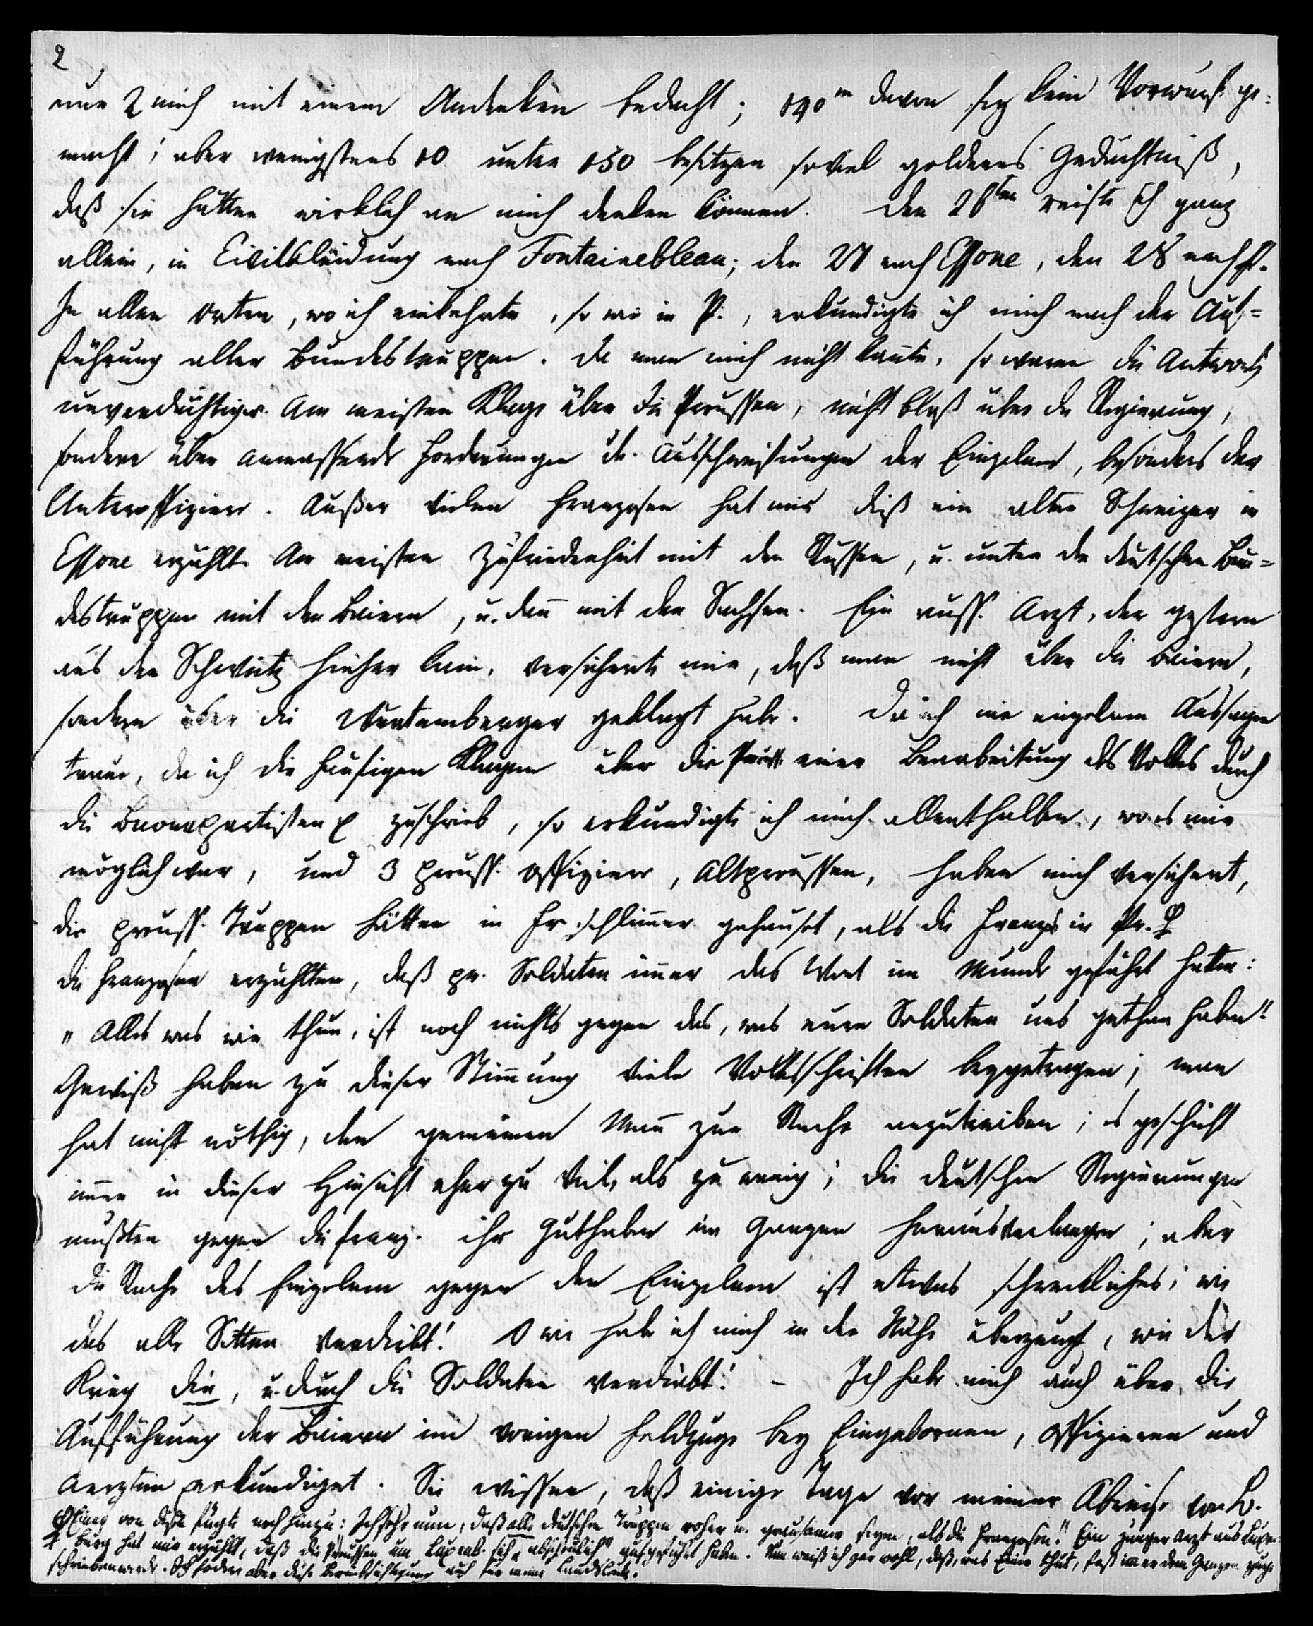 2
nur 2 mich mit einem Andenken bedacht; 140 davon sey kein Vorwurf ge=
macht; aber wenigstens 10 unter 150 besitzen soviel goldenes Gedächtniß,
daß sie hätten wirklich an mich denken können. Den 26ten reiste ich ganz
allein, in Civilkleidung nach Fontainebleau; den 27 nach Essone, den 28 nach P.
In allen Orten, wo ich einkehrte, so wie in P., erkundigte ich mich nach der Auf=
führung aller Bundestruppen. Da man mich nicht kannte, so waren die Antworten
unverdächtiger. Am meisten Klage über die Preussen, nicht bloß über die Regierung,
sondern über anmassende Forderungen u. Ausschweifungen der Einzelnen, besonders der
Unteroffiziere. Außer vielen Franzosen hat mir dieß ein alter Schweizer in
Essone erzählt. Am meisten Zufriedenheit mit den Russen, u. unter den deutschen Bun=
destruppen mit den Baiern, u. dann mit den Sachsen. Ein russ. Arzt, der gestern
aus der Schweitz hieher kam, versicherte mir, daß man nicht über die Baiern,
sondern über die Würtemberger geklagt habe. Da ich nie einzelnen Aussagen
traue, da ich die häufigen Klagen über die Preuss. einer Bearbeitung des Volkes durch
die Buonapartisten zuschrieb, so erkundigte ich mich allenthalben, wo es mir
möglich war, und 3 preuss. Offiziere, Altpreussen, haben mich versichert,
die preuss. Truppen hätten in Fr. schlimmer gehauset, als die Franzos. in Pr.
Die Franzosen erzählten, daß pr. Soldaten immer das Wort im Munde geführt hätten:
„Alles was wir thun, ist noch nichts gegen das, was eure Soldaten uns gethan haben"
Gewiß haben zu dieser Stimmung viele Volksschriften beygetragen; man
hat nicht nöthig, den gemeinen Mann zur Rache anzutreiben; es geschieht
immer in dieser Hinsicht eher zu viel, als zu wenig; die deutschen Regierungen
mußten gegen die franz. ihr Guthaben im Ganzen herausverlangen; aber
die Rache des Einzelnen gegen den Einzelnen ist etwas schreckliches; wie
das alle Sitten verdirbt! O wie habe ich mich in der Nähe überzeugt, wie der
Krieg die, u. durch die Soldaten verdirbt! – Ich habe mich auch über die
Aufführung der Baiern im vorigen Feldzuge bey Eingebornen, Offizieren und
Aerzten erkundiget. Sie wissen, daß einige Tage vor meiner Abreise von
Einer von diesen fügte noch hinzu: Ich sehe nun, daß alle deutschen Truppen roher u. grausamer seyen, als die Franzosen." Ein junger Arzt aus Luxem-
burg hat mir erzählt, daß die Preussen im Luxenb. sich „abscheulich" aufgeführt haben. Nun weiß ich gar wohl, daß, was Einer thut, fast immer dem Ganzen zuge
schrieben werde. Ich fodere aber diese Berücksichtigung auch für meine Landsleute.